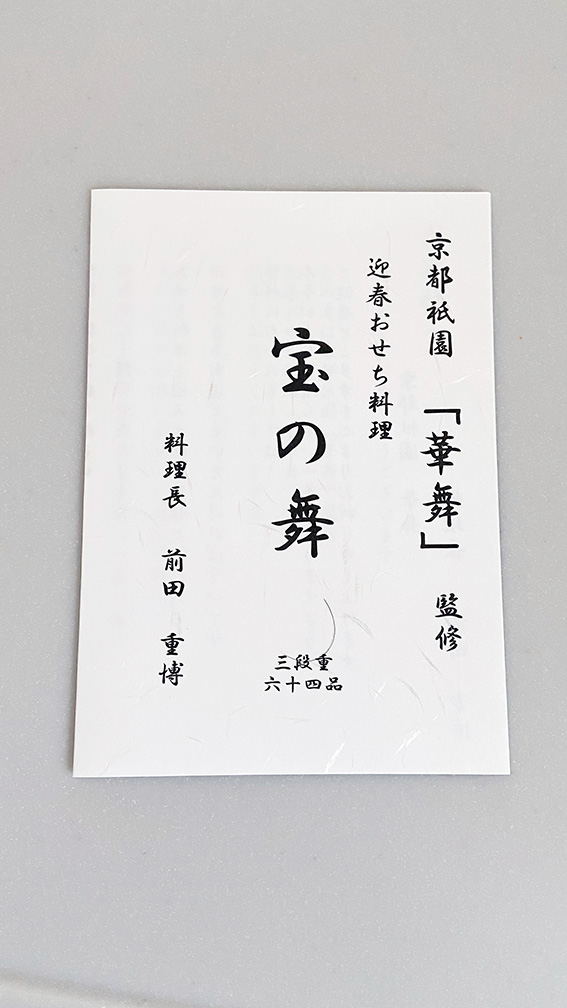 京都祇園 「華舞」 監修
迎春おせち料理
宝の舞
三段重
六十四品
料理長 前田 重博